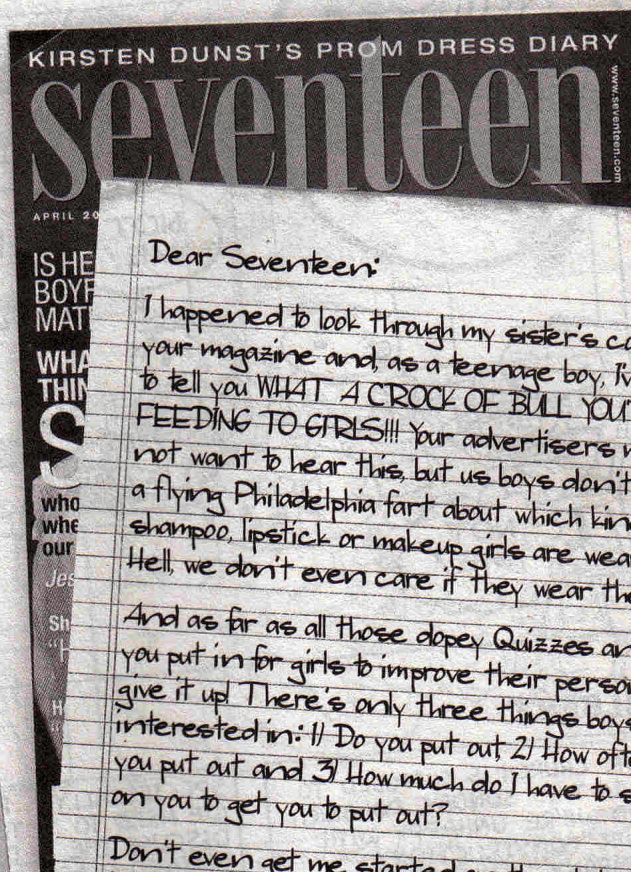 KIRSTEN DUNST'S PROM DRESS DIARY
seventeen
www.seventeen.com
APRIL 20
IS HE
BOYF
MAT
WHA
THIN
S
who
whe
our
Jes
Sh
"H
H
Dear Seventeen:
I happened to look through my sister's co
your magazine and, as a teenage boy, I'v
to tell you WHAT A CROCK OF BULL YOU'
FEEDING TO GIRLS!!! Your advertisers m
not want to hear this, but us boys don't
a flying Philadelphia fart about which kin
shampoo, lipstick or makeup girls are wea
Hell, we don't even care if they wear the
And as far as all those dopey Quizzes an
you put in for girls to improve their perso
give it up! There's only three things boys
interested in: 1) Do you put out, 2) How oft
you put out and 3) How much do I have to s
on you to get you to put out?
Don't even get me started